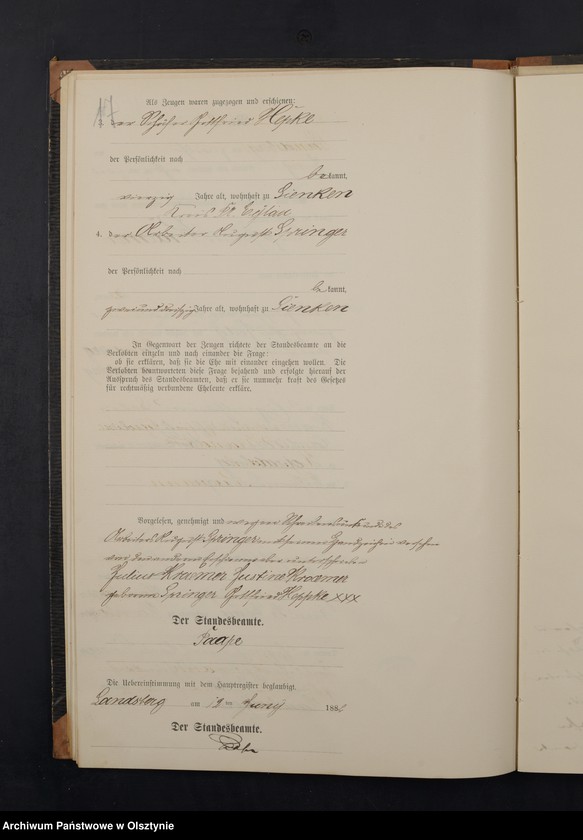 Als Zeugen waren zugezogen und erschienen:
der Gottfried Höpke
der Persönlichkeit nach
bekannt,
vierzig Jahre alt, wohnhaft zu Sienken
Kreis Pr. Eylau
4. der Arbeiter August Springer
der Persönlichkeit nach
bekannt,
zweiunddreißig Jahre alt, wohnhaft zu Sienken
In Gegenwart der Zeugen richtete der Standesbeamte an die
Verlobten einzeln und nach einander die Frage:
ob sie erklären, daß sie die Ehe mit einander eingehen wollen. Die
Verlobten beantworteten diese Frage bejahend und erfolgte hierauf der
Ausspruch des Standesbeamten, daß er sie nunmehr kraft des Gesetzes
für rechtmäßig verbundene Eheleute erkläre.
Vorgelesen, genehmigt und wegen des
Arbeiters August Springer mit seinem Handzeichen versehen
von den anderen Erschienenen aber unterschrieben
Julius Kraemer Justine Kraemer
geborene Springer Gottfried Höppke XXX
Der Standesbeamte.
Die Uebereinstimmung mit dem Hauptregister beglaubigt.
Landsberg am 12ten Juny 188
Der Standesbeamte.
Archiwum Państwowe w Olsztynie